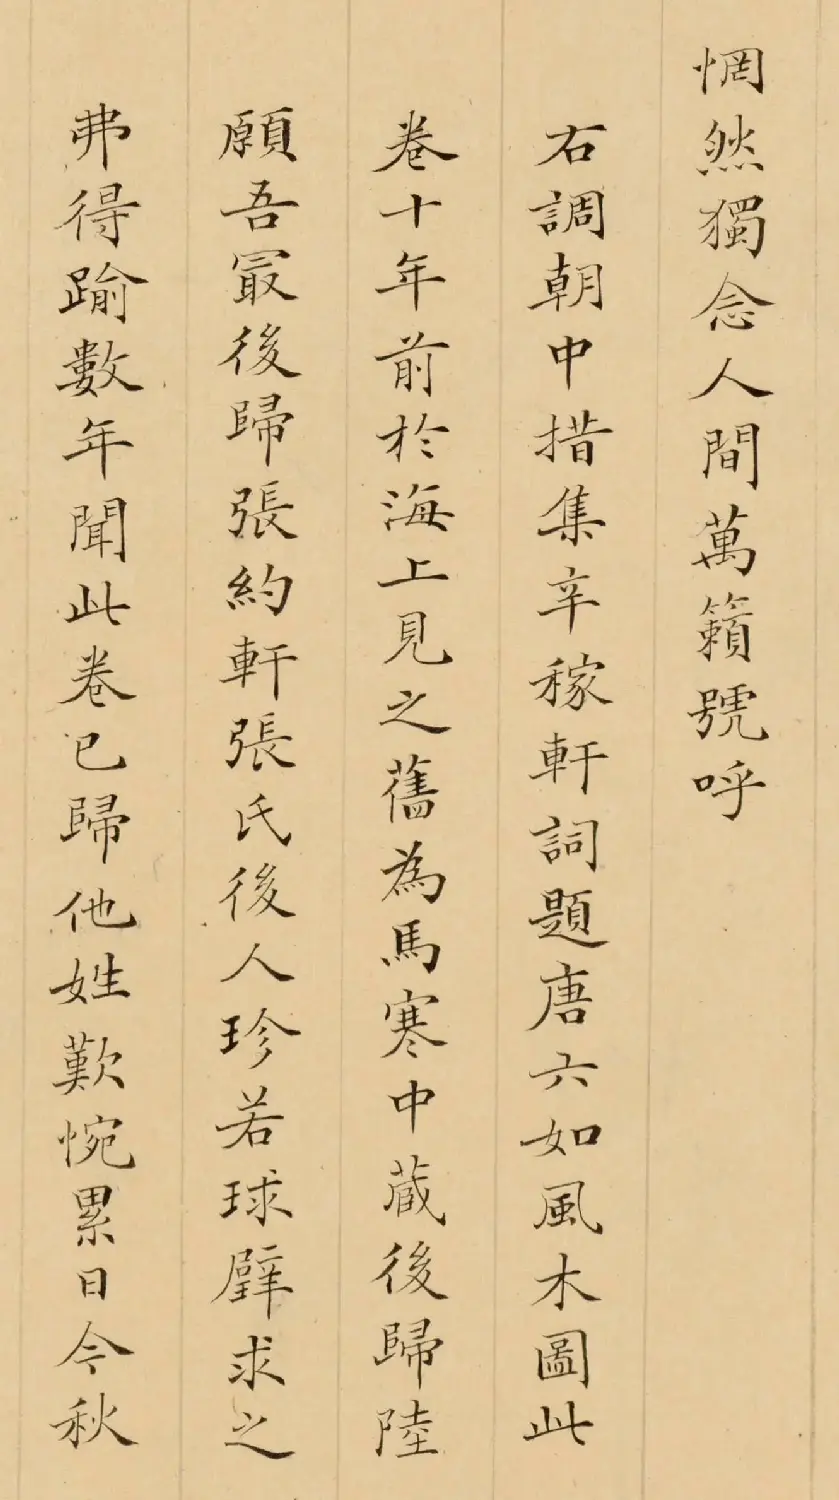 惘然獨念人間萬籟號呼
右調朝中措集辛稼軒詞題唐六如風木圖此
卷十年前於海上見之舊為馬寒中藏後歸陸
願吾最後歸張約軒張氏後人珍若球璧求之
弗得踰數年聞此卷已歸他姓歎惋累日今秋